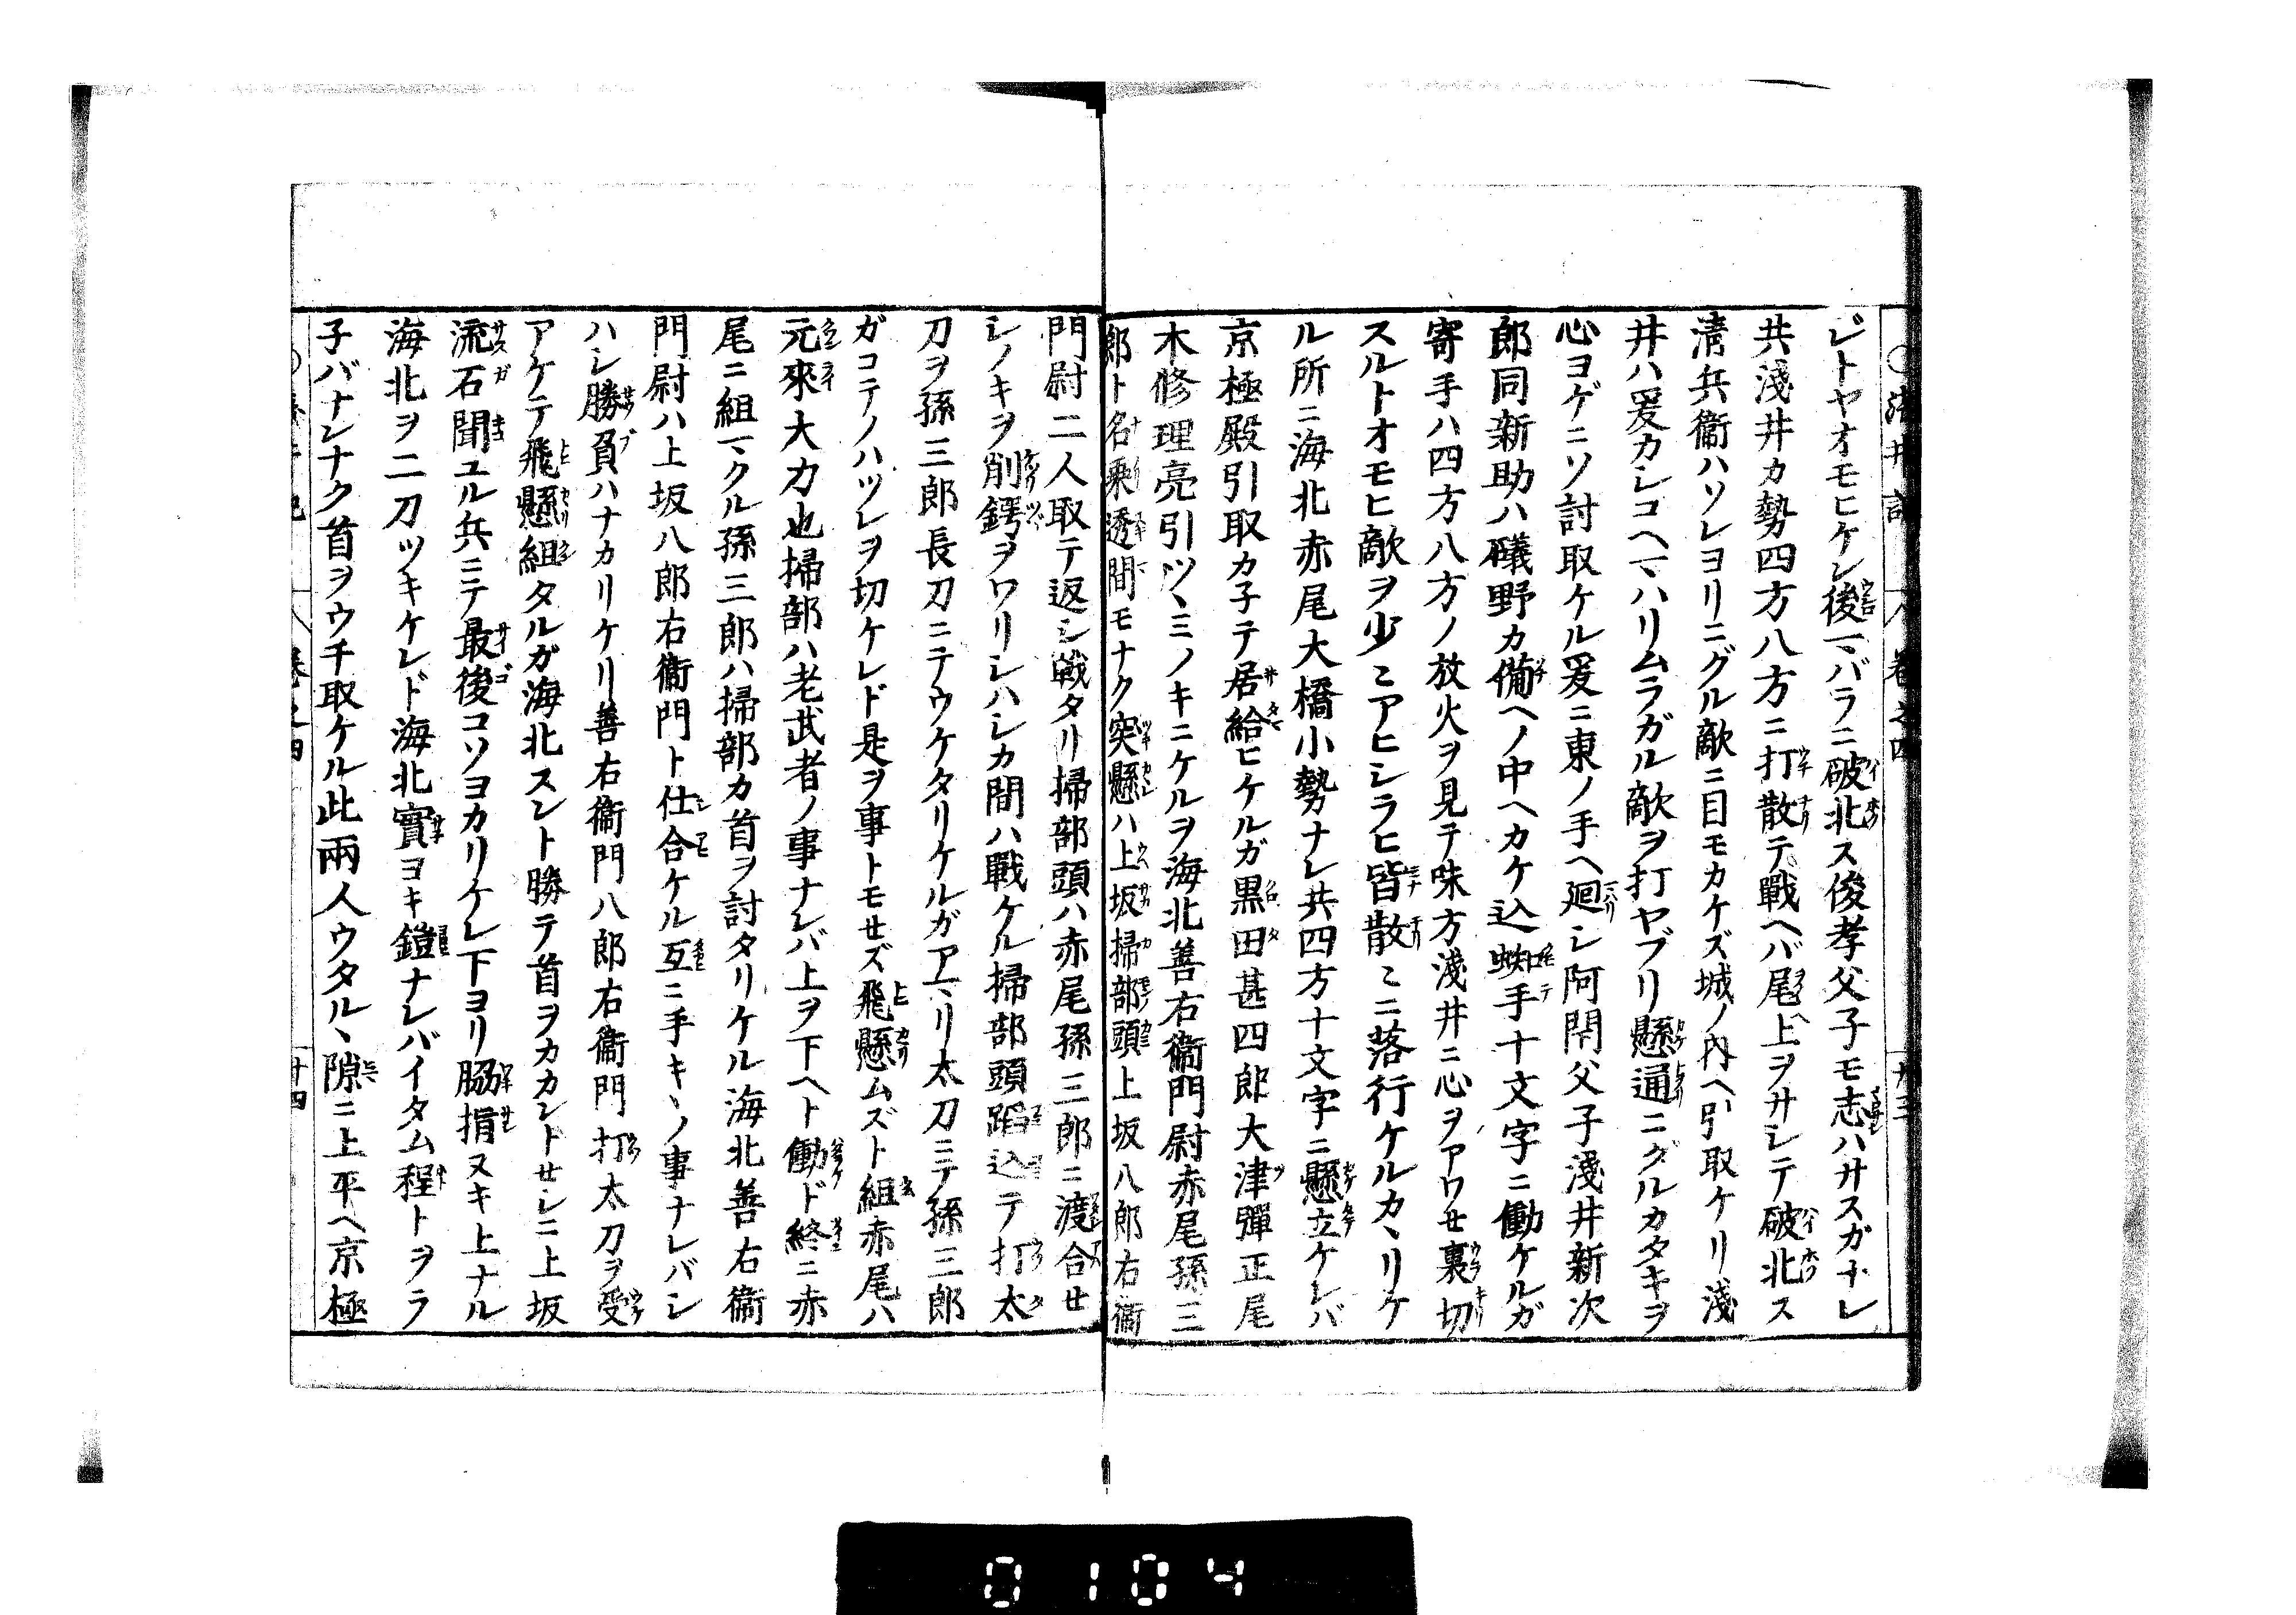 ジトヤオモヒケン後マバラニ破北ス俊孝父子モ志ハサスガナレ
共淺井カ勢四方八方ニ打散テ戰ヘバ尾上ヲサシテ破北ス
淸兵衞ハソレヨリニグル敵ニ目モカケズ城ノ内ヘ引取ケリ淺
井ハ爰カシコヘマハリムラガル敵ヲ打ヤブリ懸通ニグルカタキヲ
心ヨゲニソ討取ケル爰ニ東ノ手ヘ廻シ阿閇父子淺井新次
郎同新助ハ礒野カ備ヘノ中ヘカケ込蜘手十文字ニ働ケルガ
寄手ハ四方八方ノ放火ヲ見テ味方淺井ニ心ヲアワせ裏切
スルトオモヒ敵ヲ少〻アヒシラヒ皆散〻ニ落行ケルカヽリケ
ル所ニ海北赤尾大橋小勢ナレ共四方十文字ニ懸立ケレバ
京極殿引取カ子テ居給ヒケルガ黒田甚四郎大津彈正尾
木修理亮引ツヽミノキニケルヲ海北善右衞門尉赤尾孫三
郎ト名乘透間モナク突懸ハ上坂掃部頭上坂八郎右衞
門尉二人取テ返シ戰タリ掃部頭ハ赤尾孫三郎ニ渡合せ
シノキヲ削鍔ヲワリシハシカ間ハ戰ケル掃部頭蹈込テ打太
刀ヲ孫三郎長刀ニテウケタリケルガアマリ太刀ニテ孫三郎
ガコテノハツレヲ切ケレド是ヲ事トモせズ飛懸ムズト組赤尾ハ
元來大力也掃部ハ老武者ノ事ナレバ上ヲ下ヘト働ド終ニ赤
尾ニ組マクル孫三郎ハ掃部カ首ヲ討タリケル海北善右衞
門尉ハ上坂八郎右衞門ト仕合ケル互ニ手キヽノ事ナレバシ
ハシ勝負ハナカリケリ善右衞門八郎右衞門打太刀ヲ受
アケテ飛懸組タルガ海北スント勝テ首ヲカカントせシニ上坂
流石聞ユル兵ニテ最後コソヨカリケレ下ヨリ脇指ヌキ上ナル
海北ヲ二刀ツキケレド海北實ヨキ鎧ナレバイタム程トヲラ
子バナンナク首ヲウチ取ケル此兩人ウタルヽ隙ニ上平ヘ京極
0104